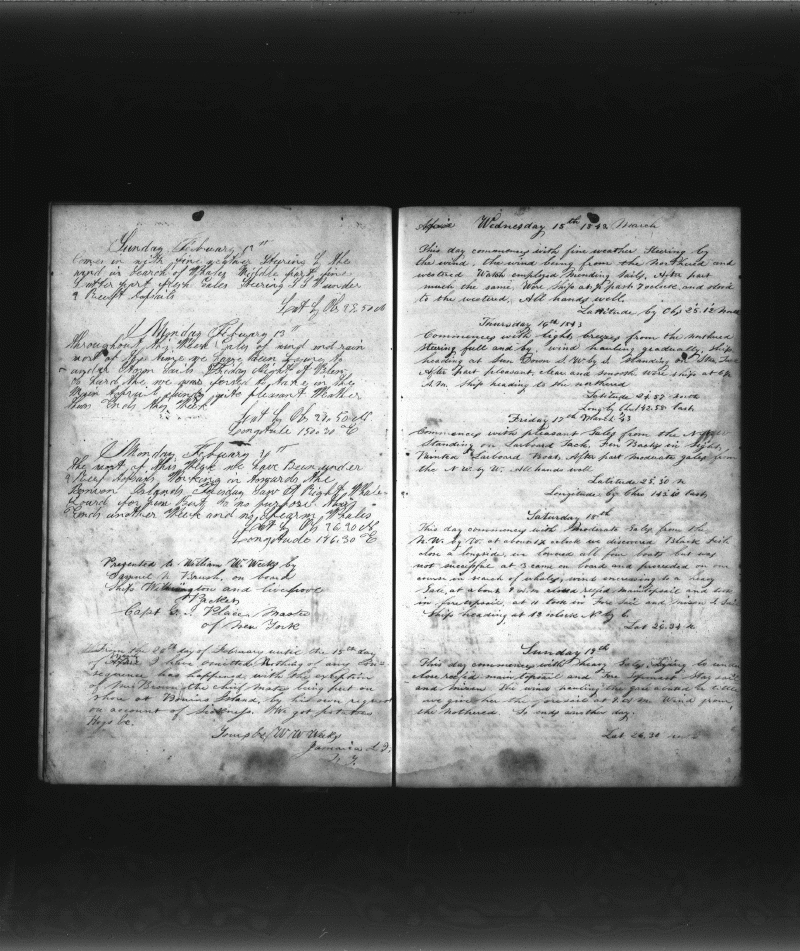 Sunday February 12"
Comes in with fine weather Steering by the
wind in Search of Whales Middle part fine
Latter part fresh Gales Steering S S under
2 Reeft topsails
Lat by Obs
Monday February 13"
Throughout this Week Gales of wind and rain
most of the time we have been lying to
under Storm Sails Friday
the we was forced to take in the
Main topsail quite pleasant Weather
thus Ends this Week
Lat by Obs 29.50 N
Longitude 150.20 E
Monday February 20"
the most of this Week we have Been under
2 Reef topsails Working in towards the
Bonin Islands Tuesday Saw A Right Whale
Lowerd for him But to no purpose
Ends another Week and no Spearm Whales
Lat by Obs 26.20 N
Longitude 146.30 E
Presented to William W. Weeks by
Samuel N Brush, on board
Ship Wellington and liverpool
Packet
Capt C. I. Place, Master
of New York
From the 20th day of February until the 15th day
of I have omitted. Nothing of any Con-
sequence has happened with the exception
of Mr Brown, the chief mate being put on
shore at Bonin Island, by his own request
on account of Sickness. We got potatoes
Hogs &c.
Yours &c W. W. Weeks
Jamaica L. I.
N. Y.
Wednesday 15th 1843 March
This day commences with fine weather Steering by
the wind, the wind being from the Northurd and
westurd Watch employed Mending Sails, After part
much the same. Wore ship at past 7 oclock and stood
to the westurd. All hands well.
Lattitude by Obs 25.12 North
Thursday 16th 1843
Commences with light breezes from the northurd
Steering full and by, wind hauling gradually ship
heading at Sun Down S. W. by S. Standing on Stm Tack
After part pleasant, clear and smooth Wore ship at
A.M. ship heading to the northurd
Latitude 24.57 north
Long by Chr 142.55 East
Friday 17th March 43
Commences with pleasant Gales from the
Standing on Larboard Tack, Fin Backs in Sight,
Painted Larboard Boat. After part moderate gales from
the N. W by W. All hands well
Latitude 25.30 n
Longitude by Chro 143.10 East
Saturday 18th
This day commences with Moderate Gales from the
N.W. by W. at about 2 oclock we discovered Black Fish
close a longside, we lowered all four boats but was
not succesful at 3 came on board and proceeded on our
course in search of whales, wind increasing to a heavy
Gale, at about 8 P.M close reefd maintopsail and took
in foretopsail, at 11 took in Fore Sail and Mizen
Ship heading at 12 oclock N by E.
Lat 26.34 N
Sunday 19th
This day commences with Heavy Gales, Lying to under
close reefed main topsail and Fore Topmast Stay sail
and Mizen The wind hauling the gale abated a little
we give her the foresail at 7 A. M. Wind from
the Nothurd. So ends another day.
Lat 26.30